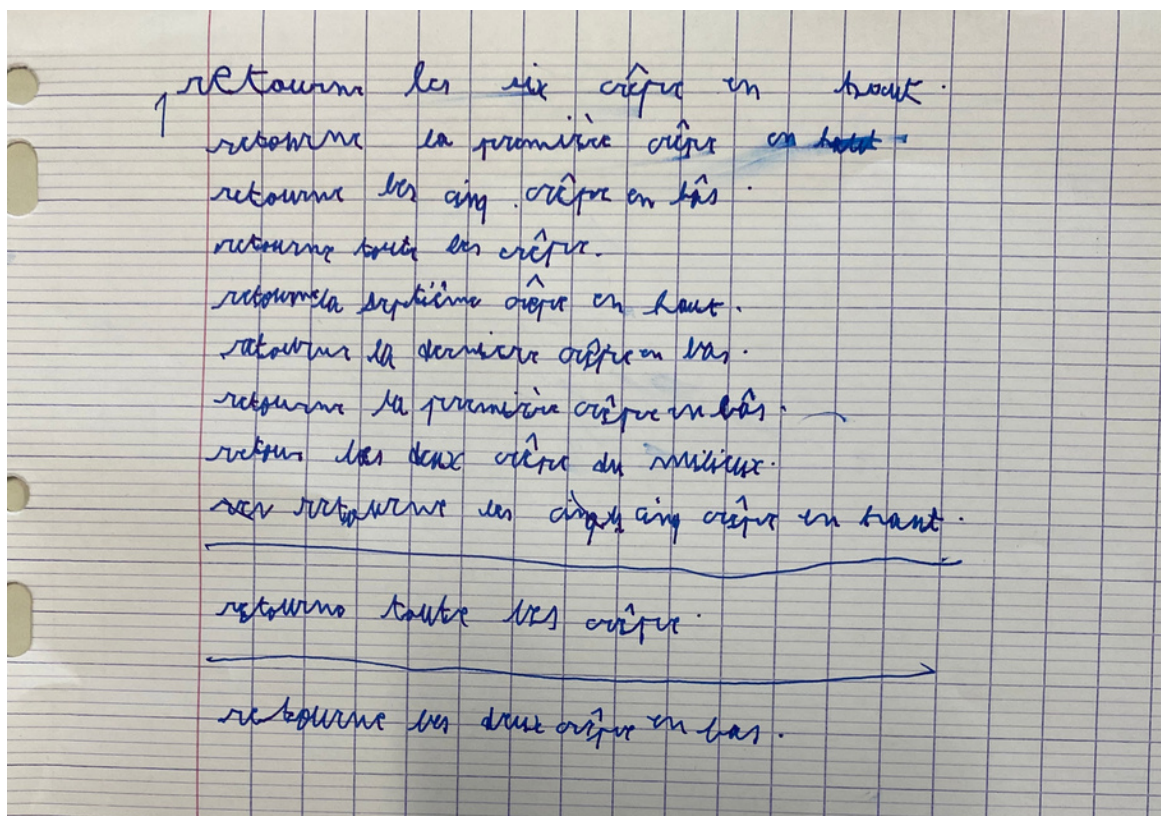 1 retourne les six crêpe en haut.
retourne la première crêpe en haut
retourne les cinq crêpe en bâs.
retourne toute les crêpe.
retourne la septième crêpe en haut.
retourne la dernière crêpe en bas.
retourne la première crêpe en bâs.
retour les deux crêpe du milieux.
retourne les cinq crêpe en haut.
retourne toute les crêpe.
retourne les deux crêpe en bas.